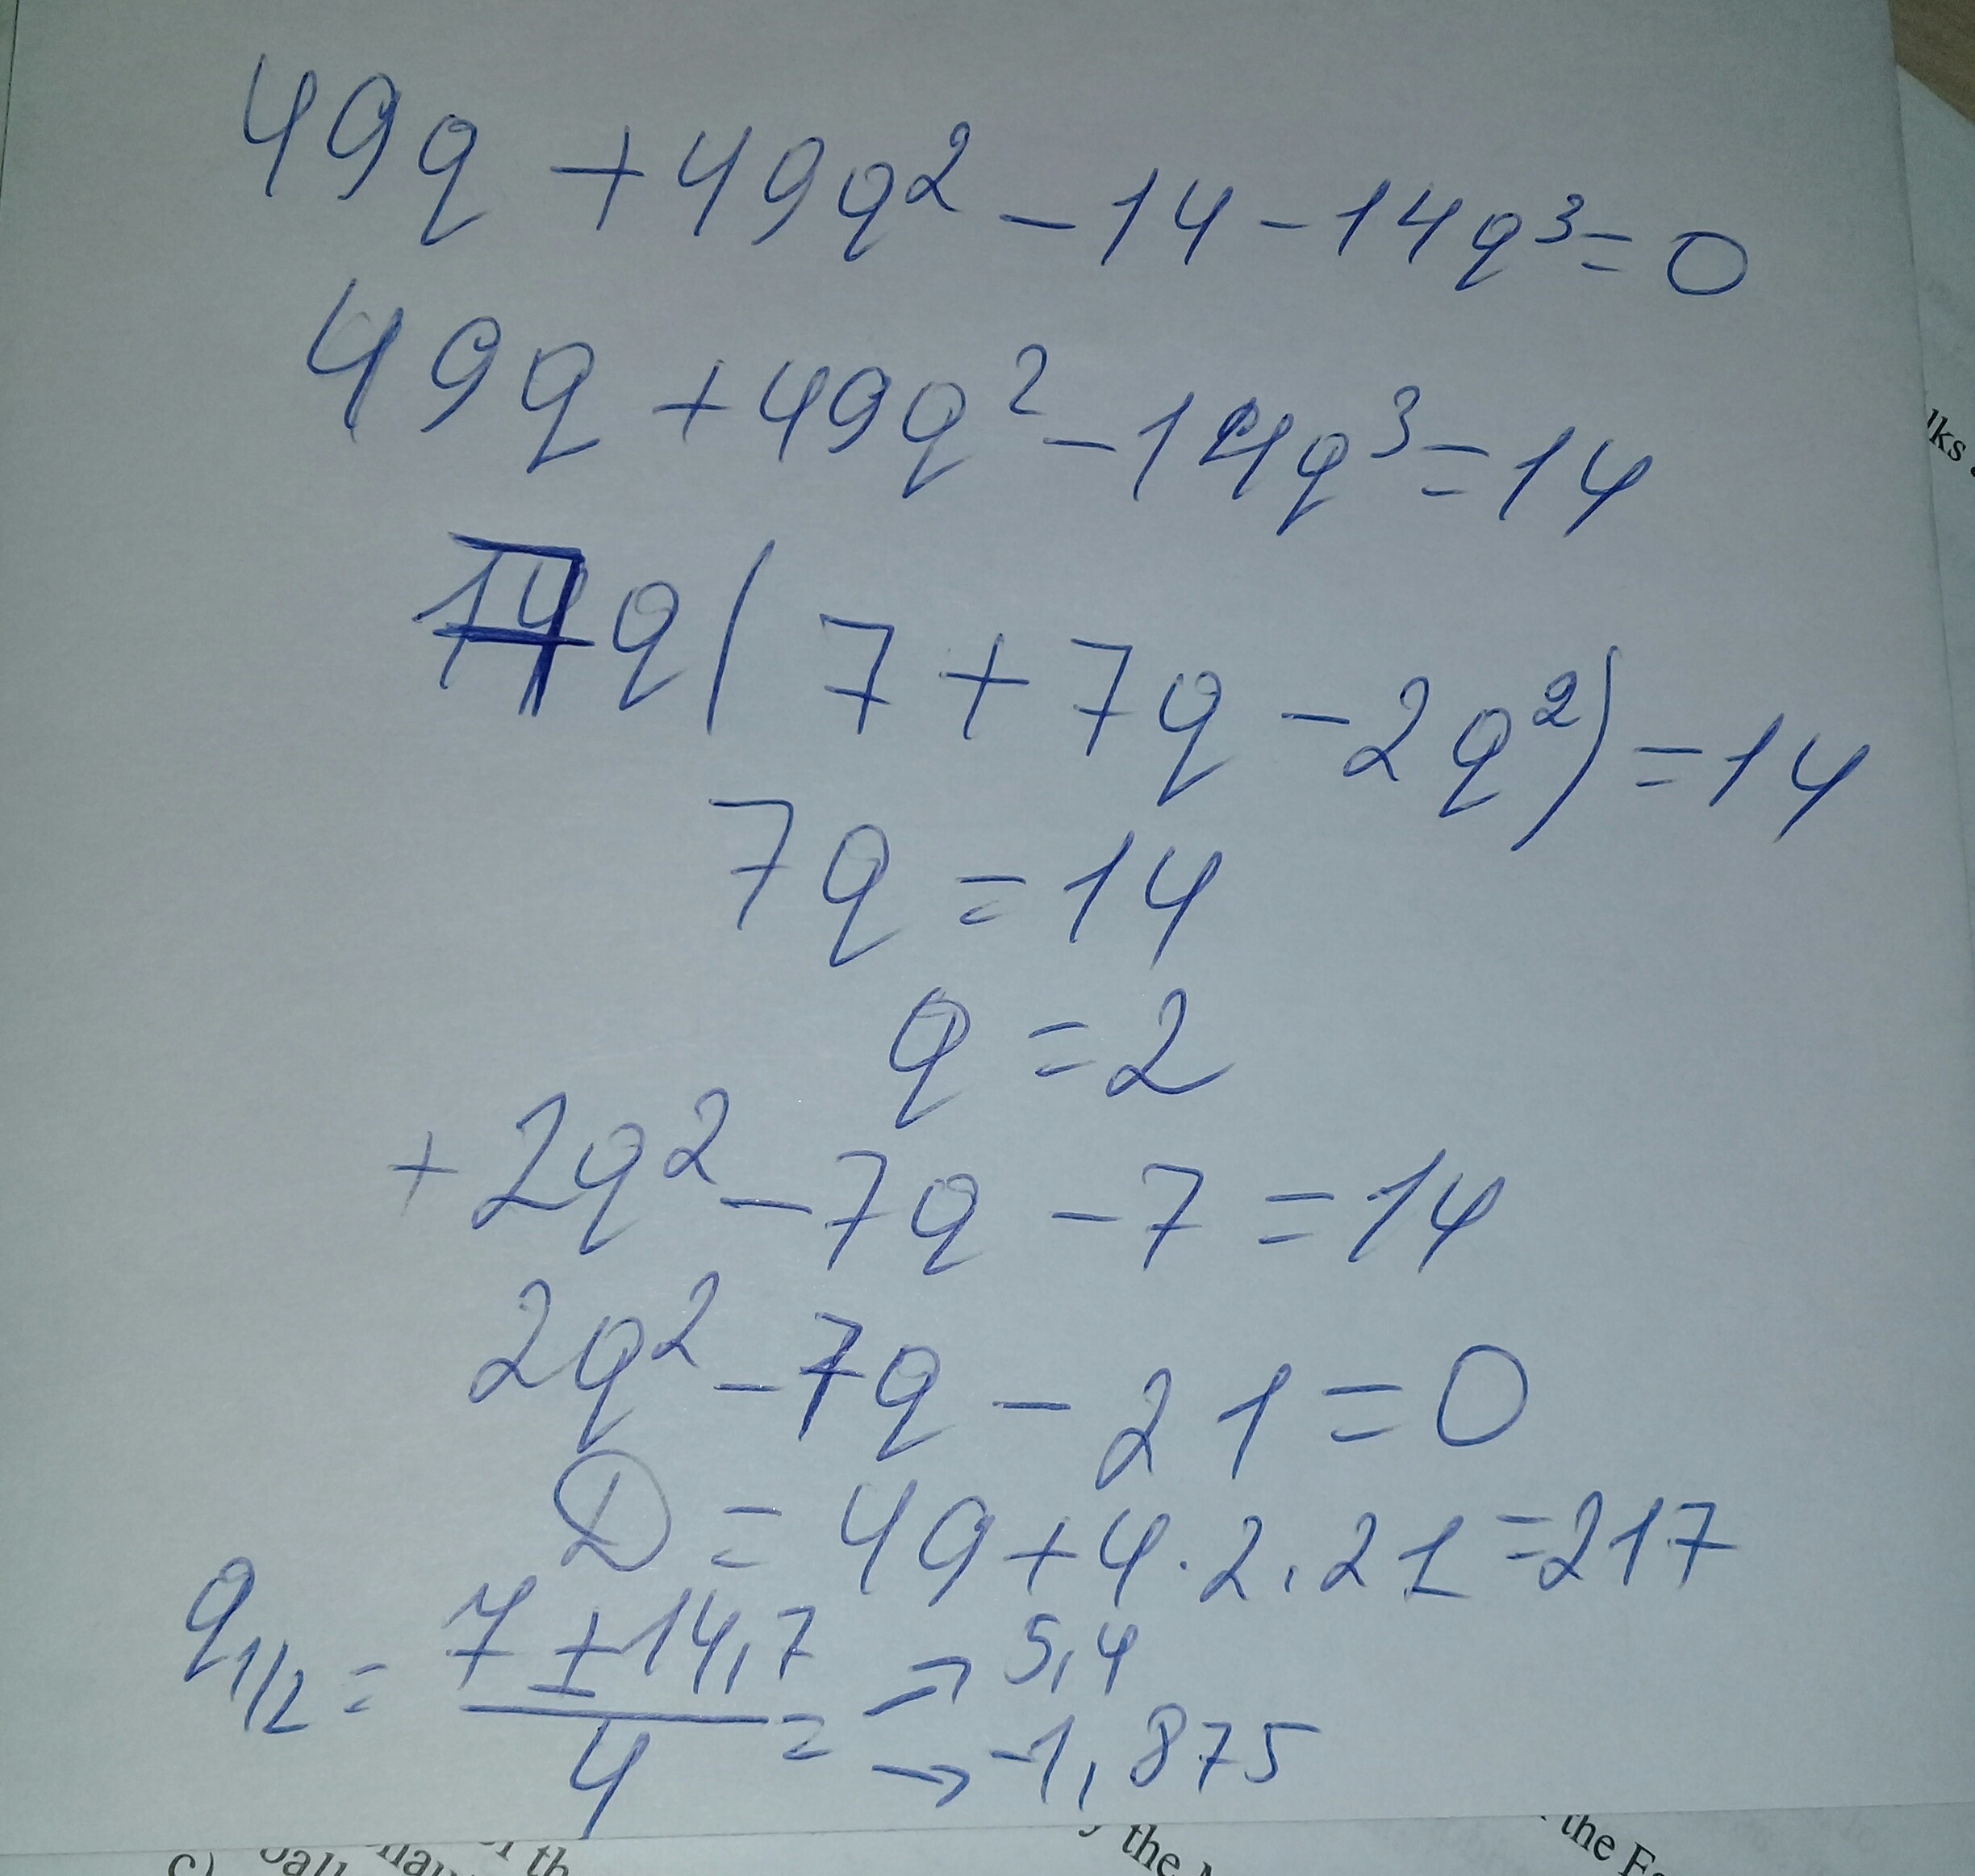 49q + 49q² - 14 - 14q³ = 0
49q + 49q² - 14q³ = 14
7q(7 + 7q - 2q²) = 14
7q = 14
q = 2
+ 2q² - 7q - 7 = 14
2q² - 7q - 21 = 0
D = 49 + 4 · 2 · 21 = 217
q1/2 = (7 ± 14,7)/4 = → 5,4
→ -1,875
lks
c)
th
the
the Fa